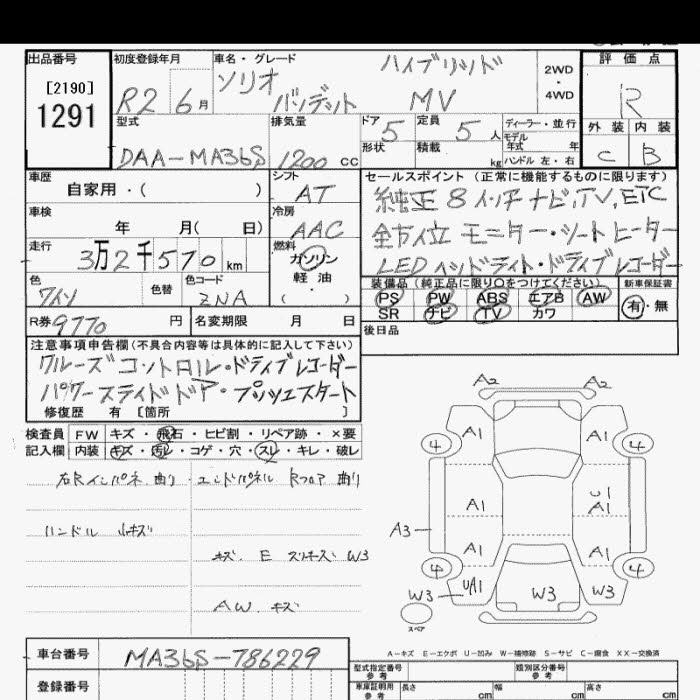 出品番号
[2190]
1291
初度登録年月
R2 6月
車名・グレード
ソリオ ハイブリッド
バンデット MV
2WD
・
4WD
評価点
R
外装 内装
C B
型式
DAA-MA36S
排気量
1200 cc
ドア 5
形状
定員 5 人
積載 kg
ディーラー・並行
モデル
年式 年
ハンドル 左・右
車歴
自家用・( )
車検
年 月( 日)
走行
3万2千570km
色
ワイン
色替
色コード
ZNA
シフト
AT
冷房
AAC
燃料
ガソリン
軽油
( )
セールスポイント (正常に機能するものに限ります)
純正8インチナビ,TV,ETC
全方位モニター・シートヒーター
LEDヘッドライト・ドライブレコーダー
装備品(純正品に限り○をつけてください)
PS PW ABS エアB AW
SR ナビ TV カワ
新車保証書
有・無
R券 9770 円
名変期限 月 日
後日品
注意事項申告欄(不具合内容等は具体的に記入して下さい)
クルーズコントロール・ドライブレコーダー
パワースライドドア・プッシュスタート
修復歴 有 [箇所 ]
検査員 FW キズ・飛石・ヒビ割・リペア跡・×要
記入欄 内装 キズ・汚レ・コゲ・穴・スレ・キレ・破レ
右Rインパネ 曲り・エンドパネル Rフロア 曲り
ハンドル 小キズ
キズ E スリキズ W3
AW キズ
A2 A2
4 A1 A1 4
A1 U1
A1
A3
A1 A1
4 4
W3 UA1 W3 W3
スペア
A-キズ E-エクボ U-凹み W-補修跡 S-サビ C-腐食 XX-交換済
車台番号 MA36S-786229
登録番号
型式指定番号
参考
類別区分番号
参考
車庫証明用
参考
長さ cm 幅 cm 高さ cm